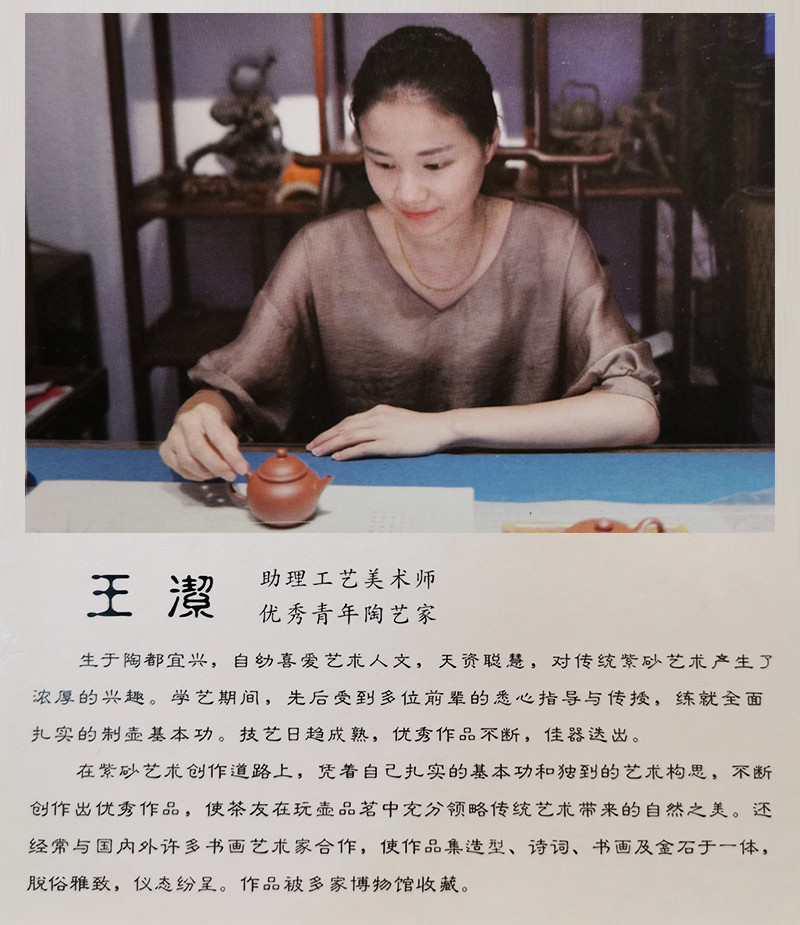 王潔
助理工艺美术师
优秀青年陶艺家
生于陶都宜兴，自幼喜爱艺术人文，天资聪慧，对传统紫砂艺术产生了
浓厚的兴趣。学艺期间，先后受到多位前辈的悉心指导与传授，练就全面
扎实的制壶基本功。技艺日趋成熟，优秀作品不断，佳器迭出。
在紫砂艺术创作道路上，凭着自己扎实的基本功和独到的艺术构思，不断
创作出优秀作品，使茶友在玩壶品茗中充分领略传统艺术带来的自然之美。还
经常与国内外许多书画艺术家合作，使作品集造型、诗词、书画及金石于一体，
脱俗雅致，仪态纷呈。作品被多家博物馆收藏。